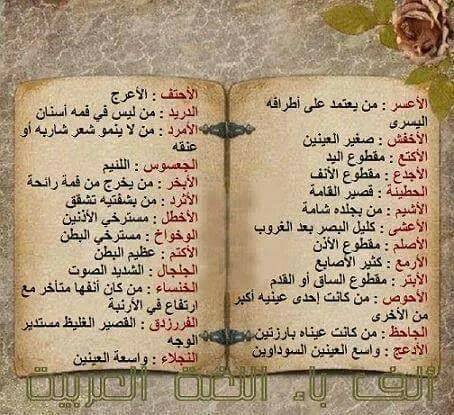 الأعسر : من يعتمد على أطرافه
اليسرى
الأخفش : صغير العينين
الأكتع : مقطوع اليد
الأجدع : مقطوع الأنف
الحطيئة : قصير القامة
الأشيم : من بجلده شامة
الأعشى : كليل البصر بعد الغروب
الأصلم : مقطوع الأذن
الأرمع : كثير الأصابع
الأبتر : مقطوع الساق أو القدم
الأحوص : من كانت إحدى عينيه أكبر
من الأخرى
الجاحظ : من كانت عيناه بارزتين
الأدعج : واسع العينين السوداوين
الأحتف : الأعرج
الدريد : من ليس في فمه أسنان
الأمرد : من لا ينمو شعر شاربه أو
عنقه
الجعسوس : اللئيم
الأبخر : من يخرج من فمة رائحة
الأثرد : من بشفتيه تشقق
الأخطل : مسترخي الأذنين
الوخواخ : مسترخي البطن
الأكثم : عظيم البطن
الجلجال : الشديد الصوت
الخنساء : من كان أنفها متأخر مع
ارتفاع في الأرنبة
الفرزدق : القصير الغليظ مستدير
الوجه
النجلاء : واسعة العينين
ألف باء اللغة العربية